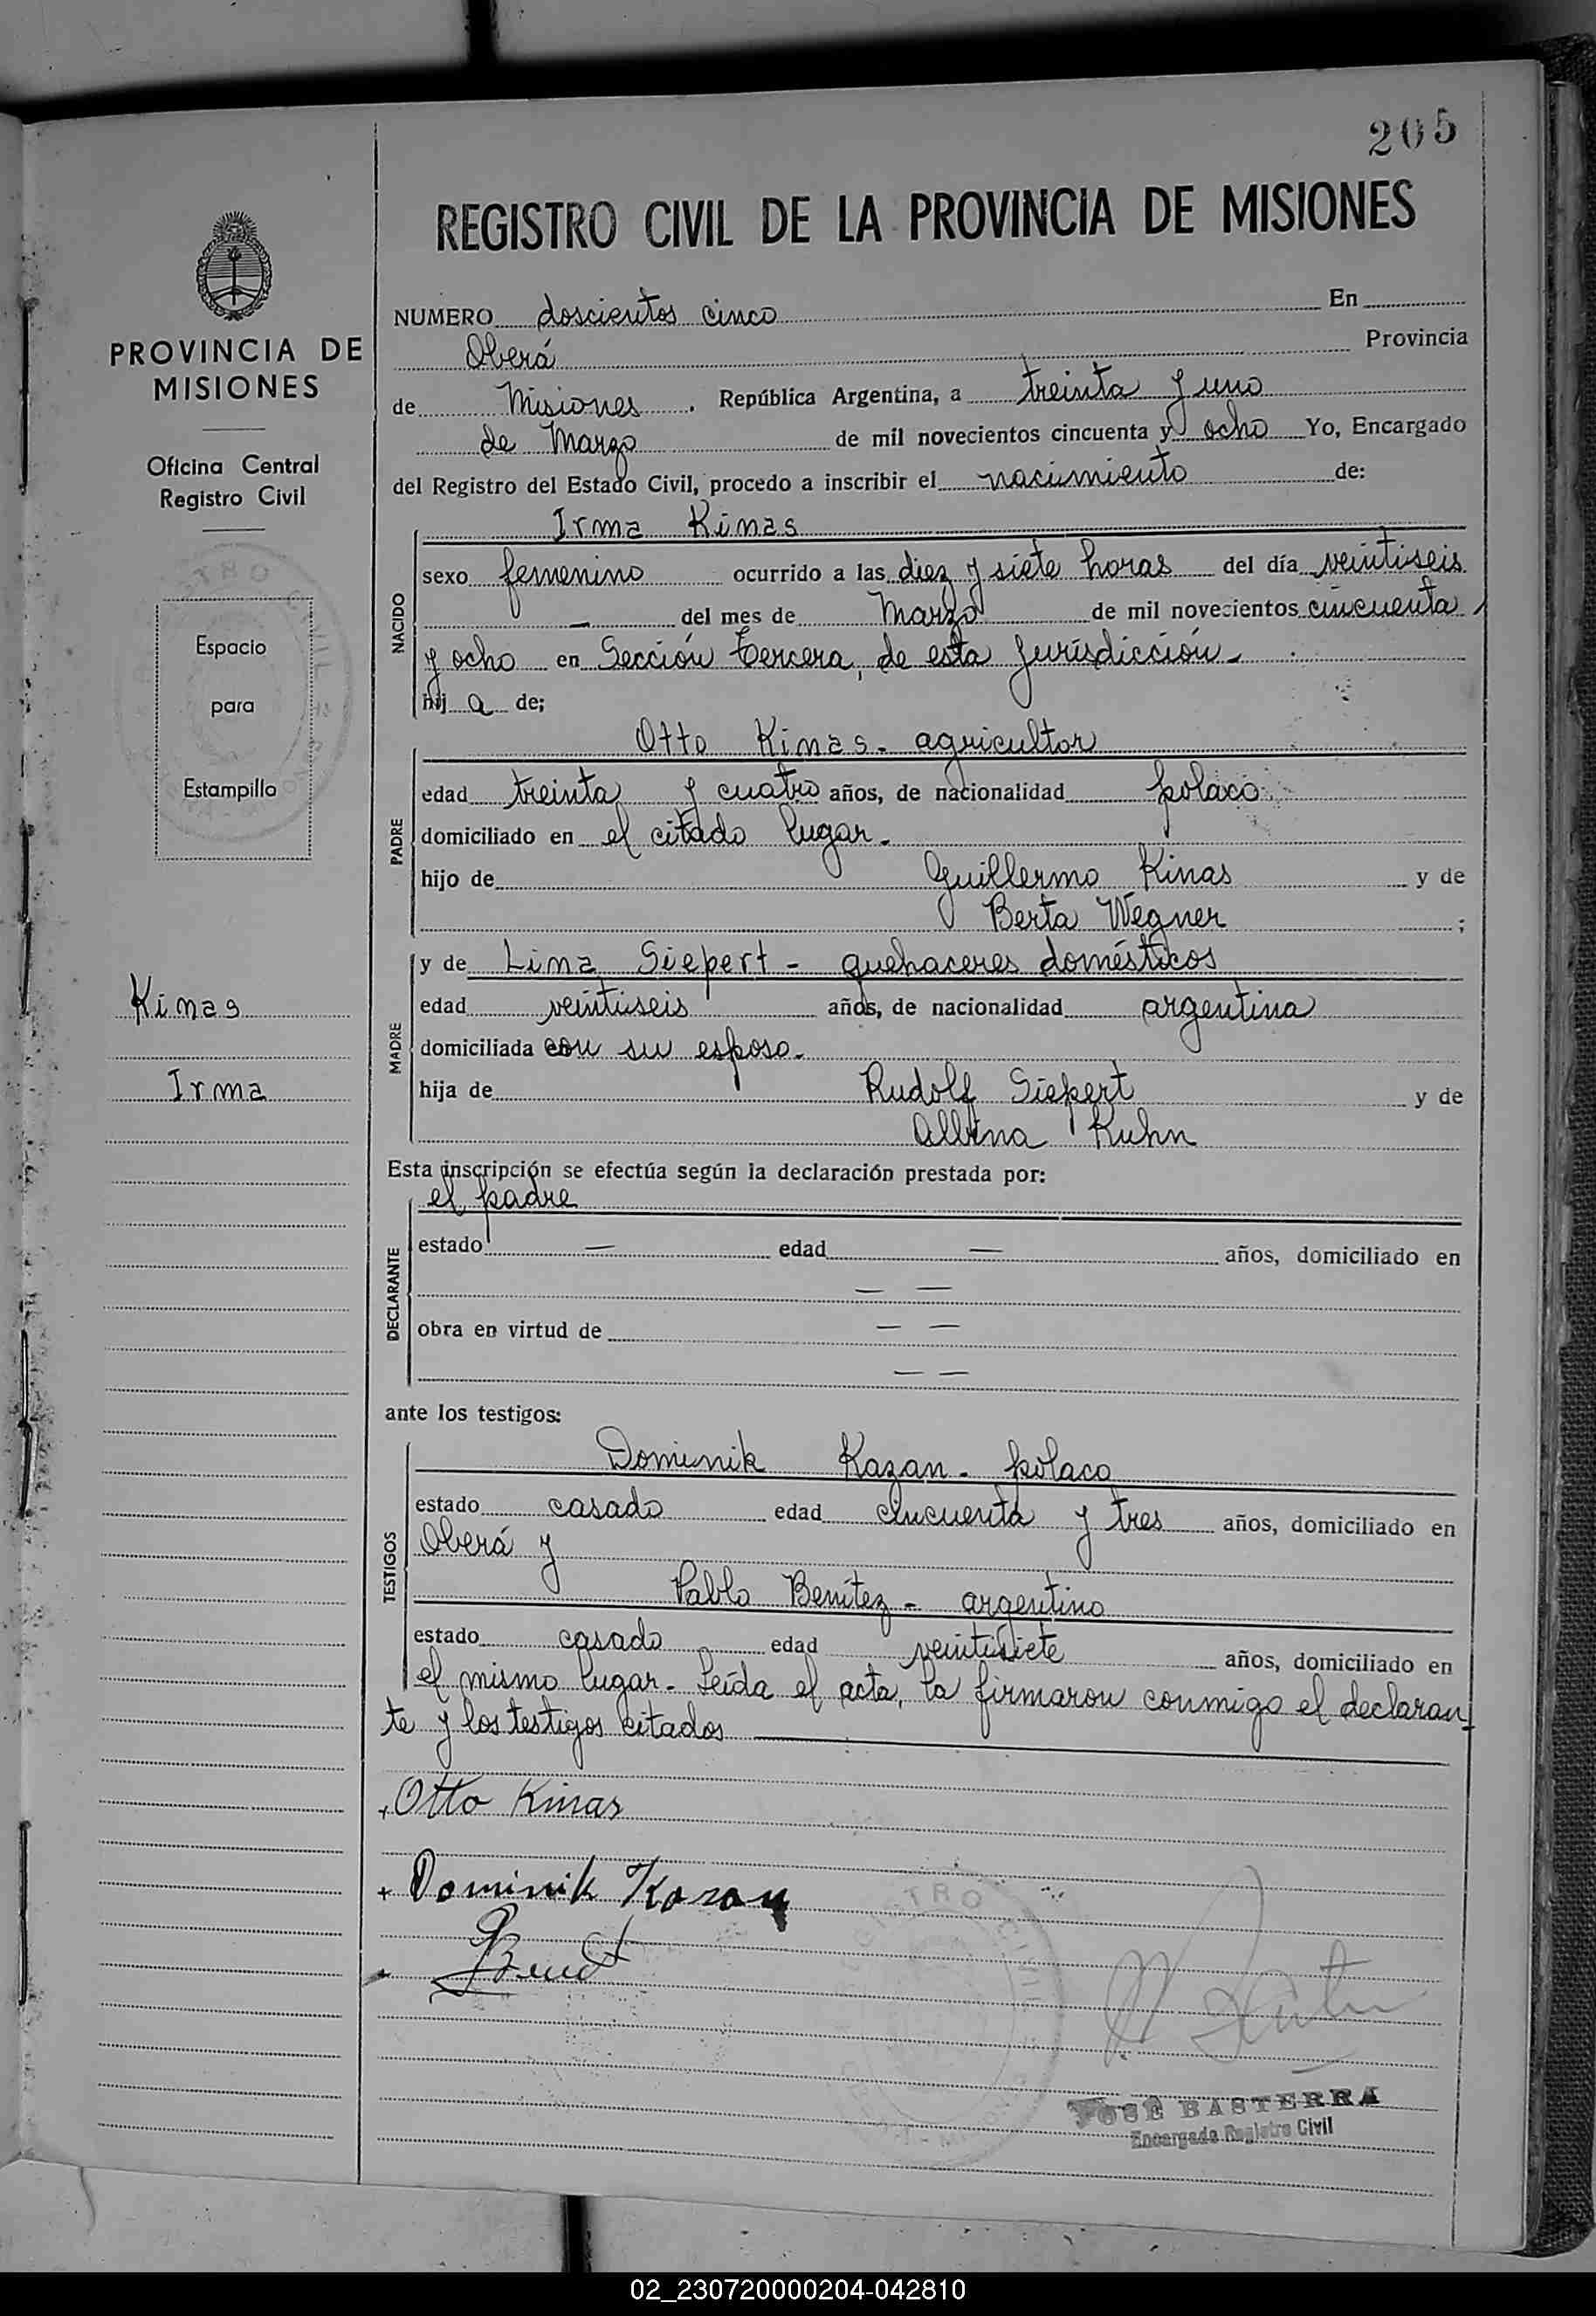 205
REGISTRO CIVIL DE LA PROVINCIA DE MISIONES
PROVINCIA DE
MISIONES
Oficina Central
Registro Civil
Espacio
para
Estampilla
Kinas
Irma
NUMERO doscientos cinco En
Oberá Provincia
de Misiones . República Argentina, a treinta y uno
de Marzo de mil novecientos cincuenta y ocho Yo, Encargado
del Registro del Estado Civil, procedo a inscribir el nacimiento de:
NACIDO
Irma Kinas
sexo femenino ocurrido a las diez y siete horas del día veintiseis
— del mes de Marzo de mil novecientos cincuenta
y ocho en Sección tercera, de esta Jurisdicción.-
hij a de;
PADRE
Otto Kinas - agricultor
edad treinta y cuatro años, de nacionalidad polaco.
domiciliado en el citado lugar.-
hijo de Guillermo Kinas y de
Berta Wegner ;
MADRE
y de Lina Siepert - quehaceres domésticos
edad veintiseis años, de nacionalidad argentina
domiciliada con su esposo.-
hija de Rudolf Siepert y de
Albina Kuhn
Esta inscripción se efectúa según la declaración prestada por:
DECLARANTE
el padre
estado — edad — años, domiciliado en
— —
obra en virtud de — —
— —
ante los testigos:
TESTIGOS
Dominik Kazan - polaco
estado casado edad cincuenta y tres años, domiciliado en
Oberá y
Pablo Benítez - argentino
estado casado edad veintisiete años, domiciliado en
el mismo lugar.- Leída el acta, la firmaron conmigo el declaran-
te y los testigos citados
Otto Kinas
Dominik Kazan
JOSÉ BASTERRA
Encargado Registro Civil
02_230720000204-042810